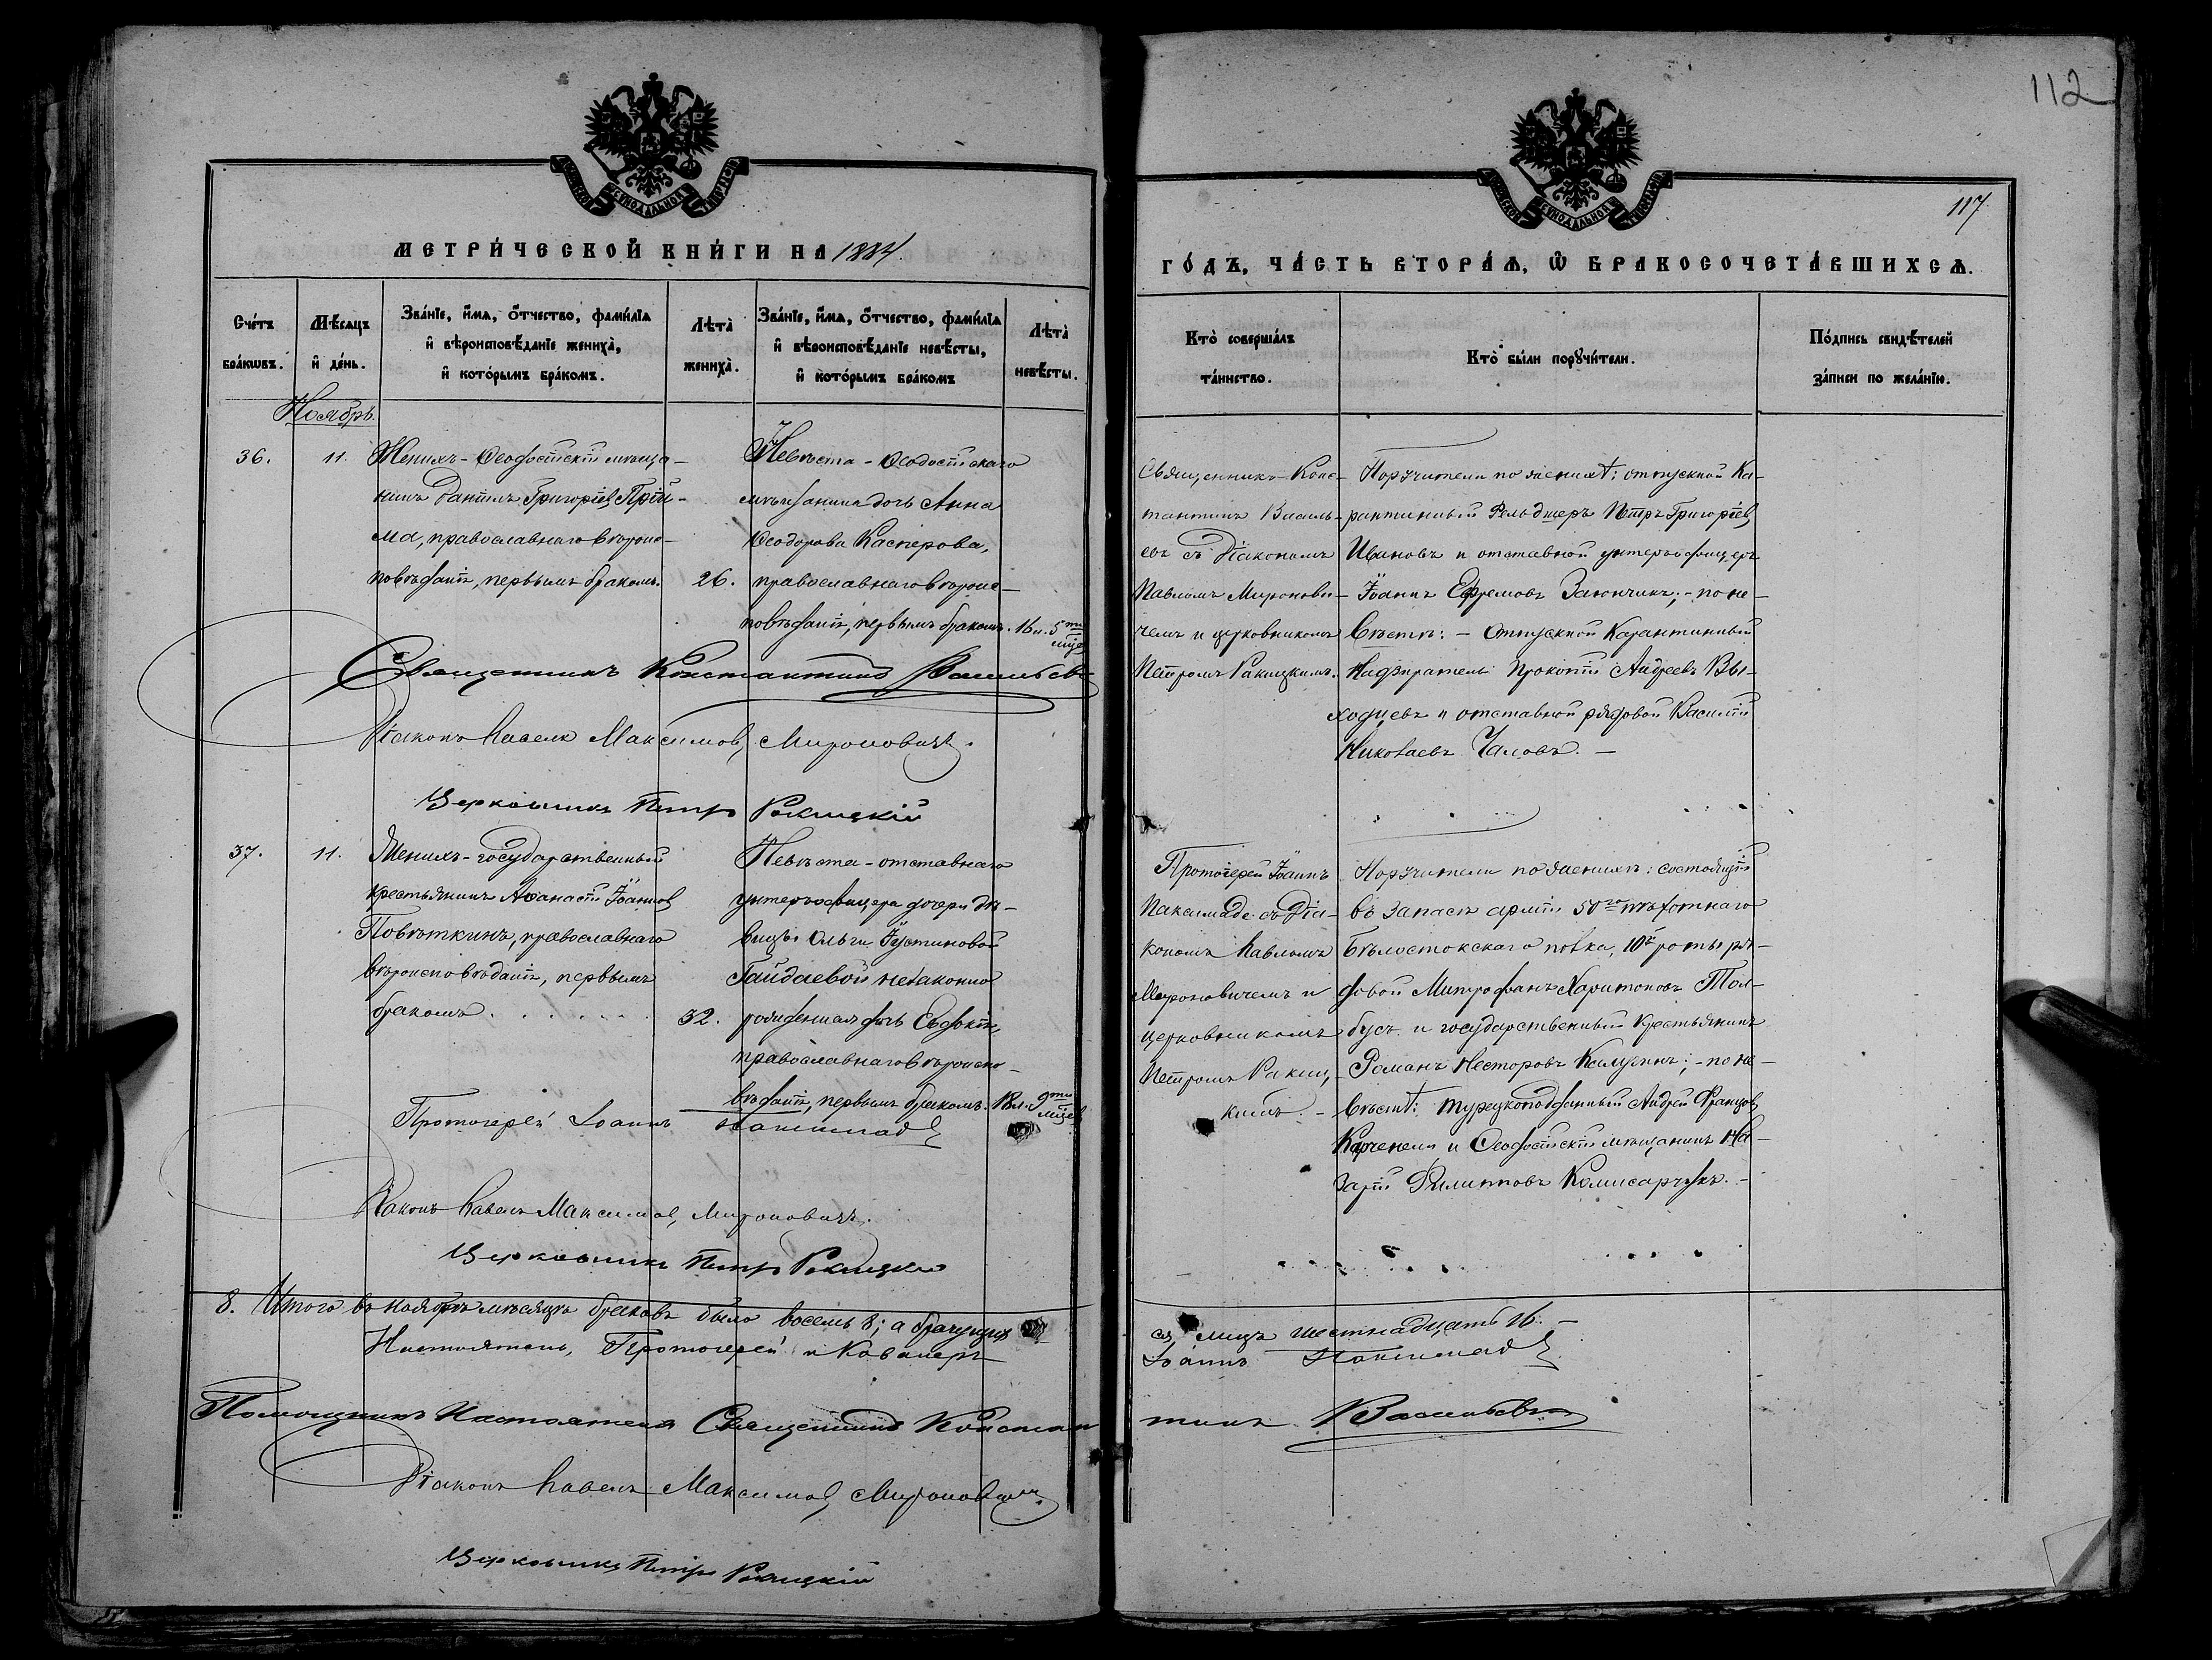 112
117.
МЕТРИЧЕСКОЙ КНИГИ НА 1884.
ГОДЪ, ЧАСТЬ ВТОРАЯ, Ѡ БРАКОСОЧЕТАВШИХСЯ.
Счетъ браковъ.
Мѣсяцъ и день.
Званіе, имя, отчество, фамилія и вѣроисповѣданіе жениха, и которымъ бракомъ.
Лѣта жениха.
Званіе, имя, отчество, фамилія и вѣроисповѣданіе невѣсты, и которымъ бракомъ
Лѣта невѣсты.
Кто совершалъ таинство.
Кто были поручители.
Подпись свидѣтелей записи по желанію.
Ноябрь.
36.
11.
Женихъ - Ѳеодосійскій мѣща-
нинъ Даніилъ Григоріевъ Прій-
ма, православнаго вѣроис-
повѣданія, первымъ бракомъ.
26.
Невѣста - Ѳеодосійскаго
мѣщанина дочь Анна
Ѳеодорова Касперова,
православнаго вѣроис-
повѣданія, первымъ бракомъ.
16 л. 5ти
мѣс.
Священникъ Конс-
тантинъ Василь-
евъ съ Діакономъ
Павломъ Миронови-
чемъ и церковникомъ
Петромъ Ракицкимъ.
Поручители по женихѣ: отпускной Ка-
рантинный Фельдшеръ Петръ Григоріевъ
Ивановъ и отставной унтеръ офицеръ
Іоаннъ Ефремовъ Заюнчикъ; - по не-
вѣстѣ: - Отпускной Карантинный
Надзиратель Прокопій Андреевъ Вы-
ходцевъ и отставной рядовой Василій
Николаевъ Чаловъ. -
Священникъ Константинъ Васильевъ
Діаконъ Павелъ Максимовъ Мироновичъ.
Церковникъ Петръ Ракицкій
37.
11.
Женихъ - государственный
крестьянинъ Аѳанасій Іоанновъ
Повѣткинъ, православнаго
вѣроисповѣданія, первымъ
бракомъ.
32.
Невѣста - отставнаго
унтеръ офицера дочери дѣ-
вицы Ольги Іустиновой
Гайдаевой незаконно
рожденная дочь Евдокія,
православнаго вѣроиспо-
вѣданія, первымъ бракомъ.
18 л. 9ти
мѣсяц.
Протоіерей Іоаннъ
Паксимаде съ Діа-
кономъ Павломъ
Мироновичемъ и
церковникомъ
Петромъ Ракиц-
кимъ. -
Поручители по женихѣ: состоящій
въ запасѣ арміи 50го пѣхотнаго
Бѣлостокскаго полка, 10й роты ря-
довой Митрофанъ Харитоновъ Тол-
бусъ и государственный крестьянинъ
Романъ Несторовъ Калугинъ; - по не-
вѣстѣ: турецкоподданный Андрей Францовъ
Карченели и Ѳеодосійскій мѣщанинъ На-
зарій Филипповъ Комисарчукъ. -
Протоіерей Іоаннъ Паксимадъ
Діаконъ Павелъ Максимовъ Мироновичъ.
Церковникъ Петръ Ракицкій
8. Итого въ ноябрѣ мѣсяцѣ браковъ было восемь 8; а брачущих
ся, лицъ шестнадцать 16. -
Настоятель, Протоіерей и Кавалеръ
Іоаннъ Паксимадъ
Помощникъ Настоятеля Священникъ Констан
тинъ Васильевъ
Діаконъ Павелъ Максимовъ Мироновичъ.
Церковникъ Петръ Ракицкій